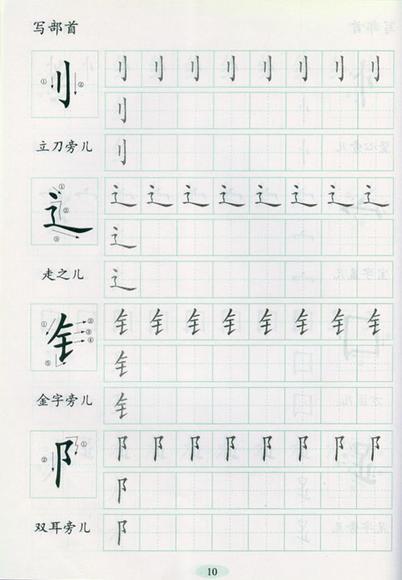 写部首
① ② 刂 刂 刂 刂 刂 刂 刂 刂 刂
刂
立刀旁儿 刂
① ② ③ 辶 辶 辶 辶 辶 辶 辶 辶 辶
辶
走之儿 辶
① ② ③ ④ ⑤ 钅 钅 钅 钅 钅 钅 钅 钅 钅
钅
金字旁儿 钅
① ② 阝 阝 阝 阝 阝 阝 阝 阝 阝
阝
双耳旁儿 阝
10